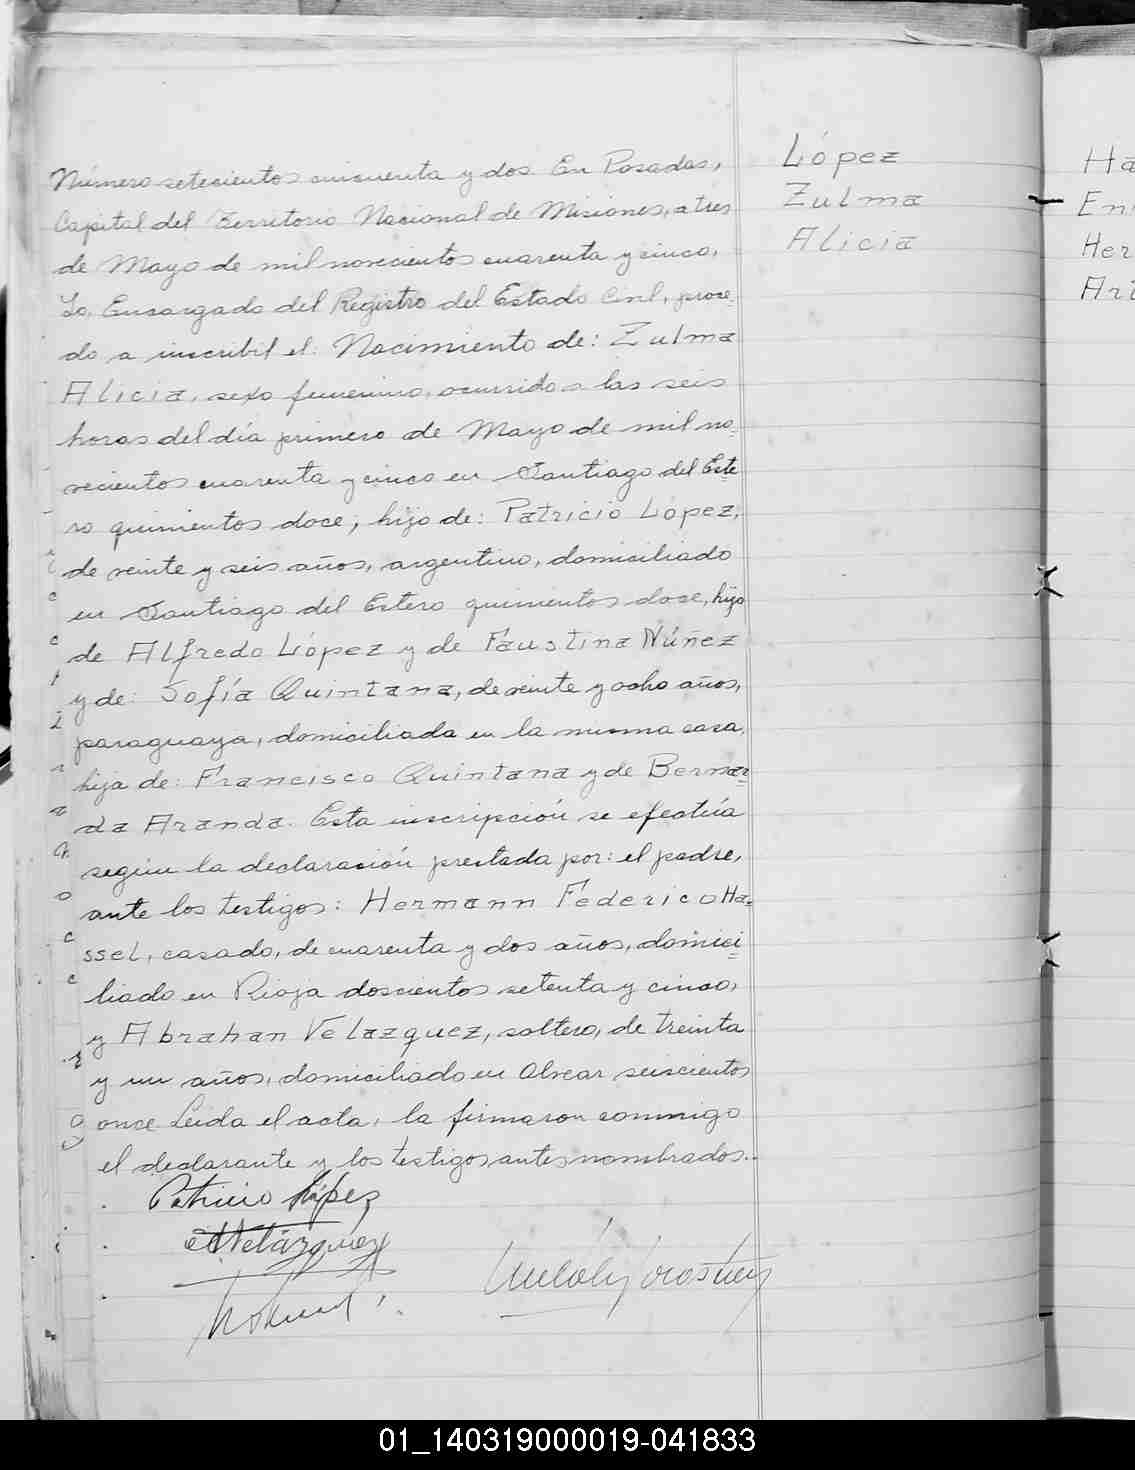 López
Zulma
Alicia
Número setecientos cincuenta y dos En Posadas,
Capital del Territorio Nacional de Misiones, a tres
de Mayo de mil novecientos cuarenta y cinco,
Yo, Encargado del Registro del Estado Civil, proce-
do a inscribil el: Nacimiento de: Zulma
Alicia, sexo femenino, ocurrido a las seis
horas del día primero de Mayo de mil no-
vecientos cuarenta y cinco en Santiago del Este
ro quinientos doce; hijo de: Patricio López,
de veinte y seis años, argentino, domiciliado
en Santiago del Estero quinientos doce, hijo
de Alfredo López y de Faustina Núñez
y de: Sofía Quintana, de veinte y ocho años,
paraguaya, domiciliada en la misma casa,
hija de: Francisco Quintana y de Bernar-
da Aranda. Esta inscripción se efectúa
según la declaración prestada por: el padre,
ante los testigos: Hermann Federico Ha-
ssel, casado, de cuarenta y dos años, domici-
liado en Rioja doscientos setenta y cinco,
y Abrahan Velazquez, soltero, de treinta
y un años, domiciliado en Alvear seiscientos
once Leída el acta, la firmaron conmigo
el declarante y los testigos antes nombrados.-
Patricio López
AVelázquez
Ha
En
Her
Ar
01_140319000019-041833